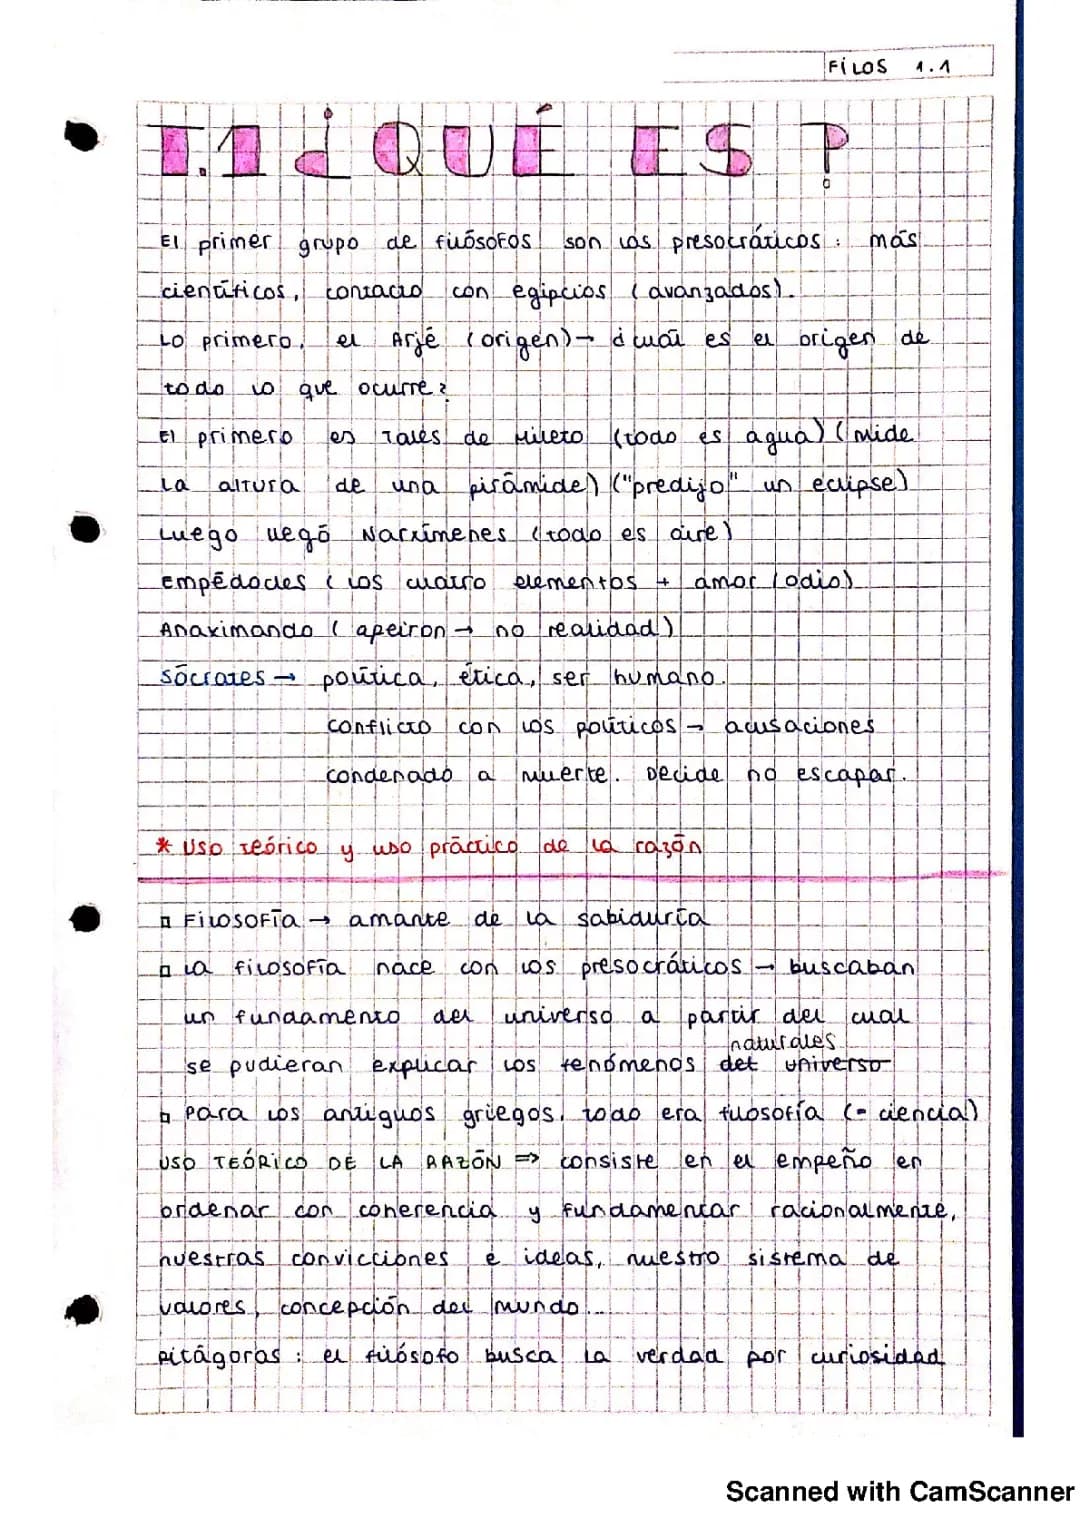 FILOS 1.1
T.1 ¿QUÉ ES?
El primer grupo de filósofos son los presocráticos: más
científicos, contacto con egipcios (avanzados).
Lo primero, el Arjé (origen) → ¿cuál es el origen de
todo lo que ocurre?
El primero es Tales de Mileto (todo es agua) (mide
la altura de una pirámide) ("predijo" un eclipse)
Luego llegó Narxímenes (todo es aire)
Empédocles (los cuatro elementos + amor/odio)
Anaximando (apeiron → no realidad)
Sócrates → política, ética, ser humano.
conflicto con los políticos → acusaciones
condenado a muerte. Decide no escapar.
* Uso teórico y uso práctico de la razón
▫ Filosofía → amante de la sabiduría
▫ La filosofía nace con los presocráticos → buscaban
un fundamento del universo a partir del cual
naturales
se pudieran explicar los fenómenos del universo
▫ Para los antiguos griegos, todo era filosofía (= ciencia)
USO TEÓRICO DE LA RAZÓN ⇒ consiste en el empeño en
ordenar con coherencia y fundamentar racionalmente,
nuestras convicciones e ideas, nuestro sistema de
valores, concepción del mundo...
Pitágoras: el filósofo busca la verdad por curiosidad
Scanned with CamScanner